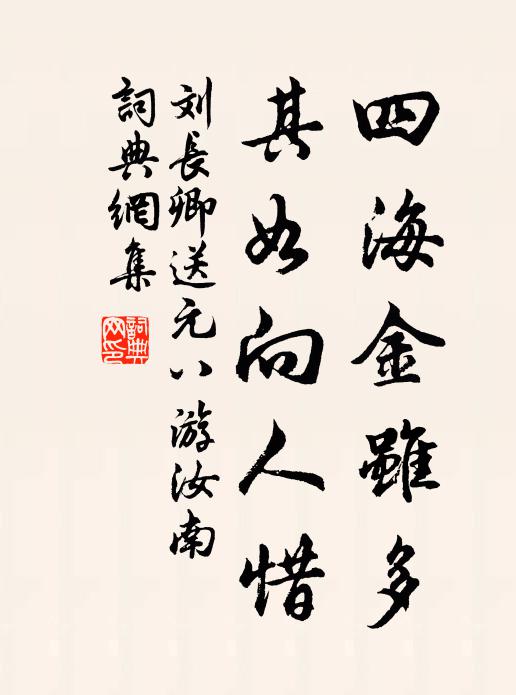 四海金雖多
其如向人惜
刘長卿送元八游汝南
詞典網集
詞典網印